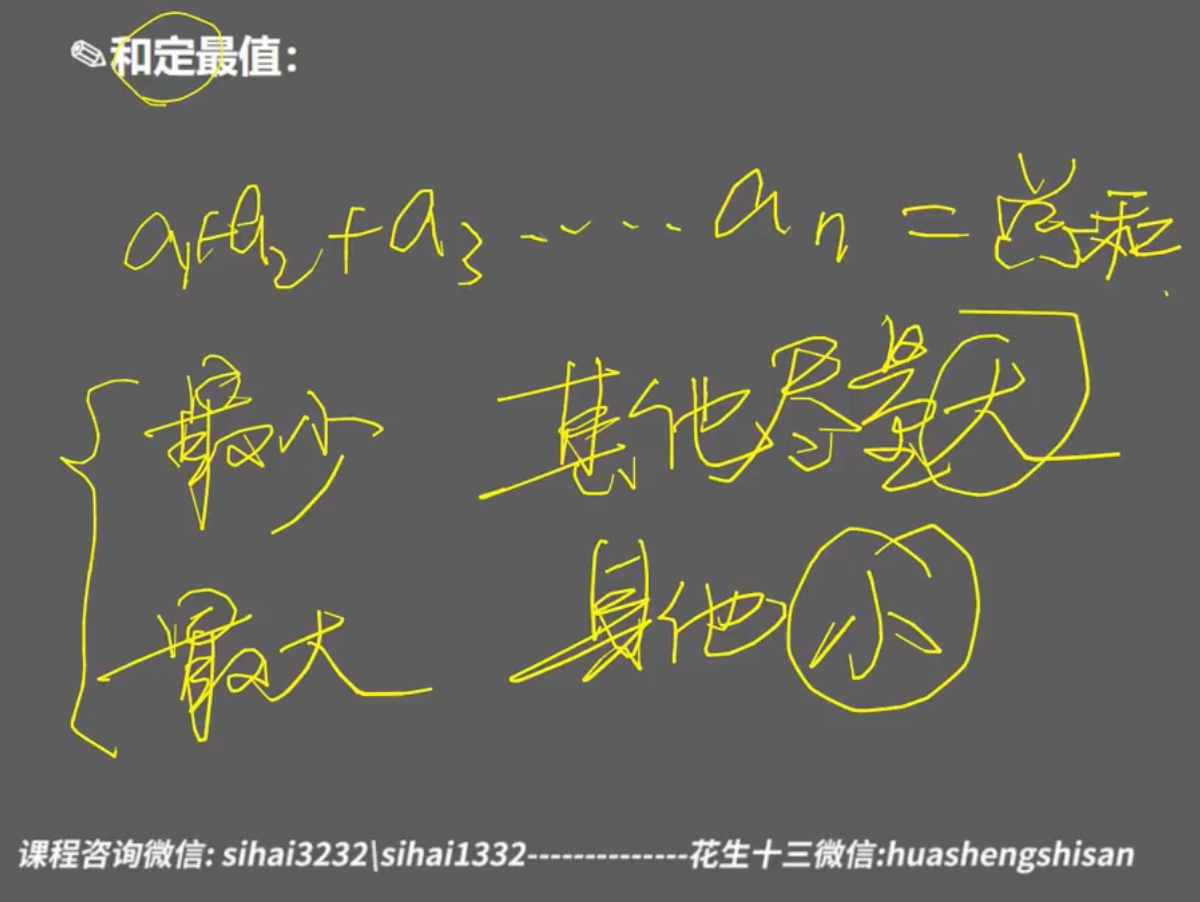 和定最值：
a₁+a₂+a₃……aₙ=总和
最少 其他尽量大
最大 其他小
课程咨询微信: sihai3232\sihai1332--------------花生十三微信:huashengshisan